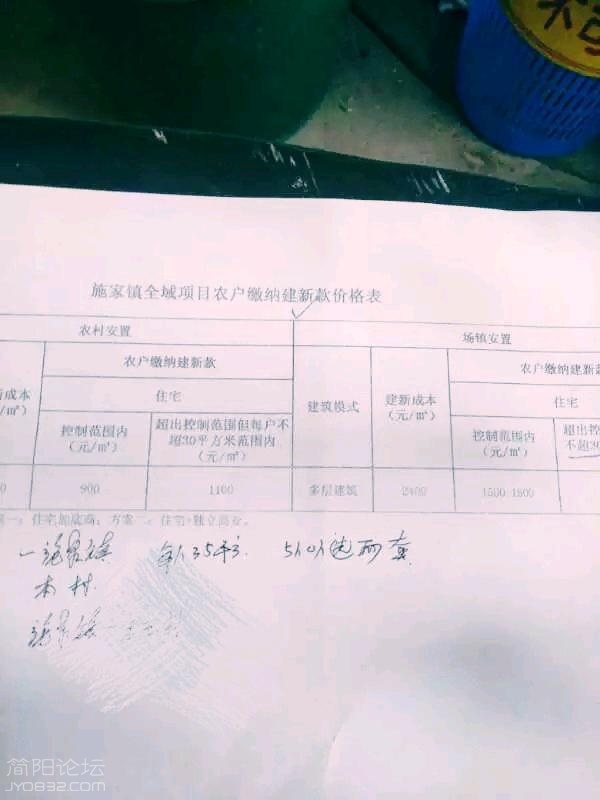 施家镇全域项目农户缴纳建新款价格表
农村安置 场镇安置
新成本（元/㎡） 农户缴纳建新款 建筑模式 建新成本（元/㎡） 农户缴纳建新款
住宅 住宅
控制范围内（元/㎡） 超出控制范围但每户不超30平方米范围内（元/㎡） 控制范围内（元/㎡） 超出控 不超30
0 900 1100 多层建筑 2400 1500-1800
住宅加底商；方案二：住宅+独立商业。
一施家镇 每人35平方. 5人以选两套
本村
简阳论坛
JY0832.com